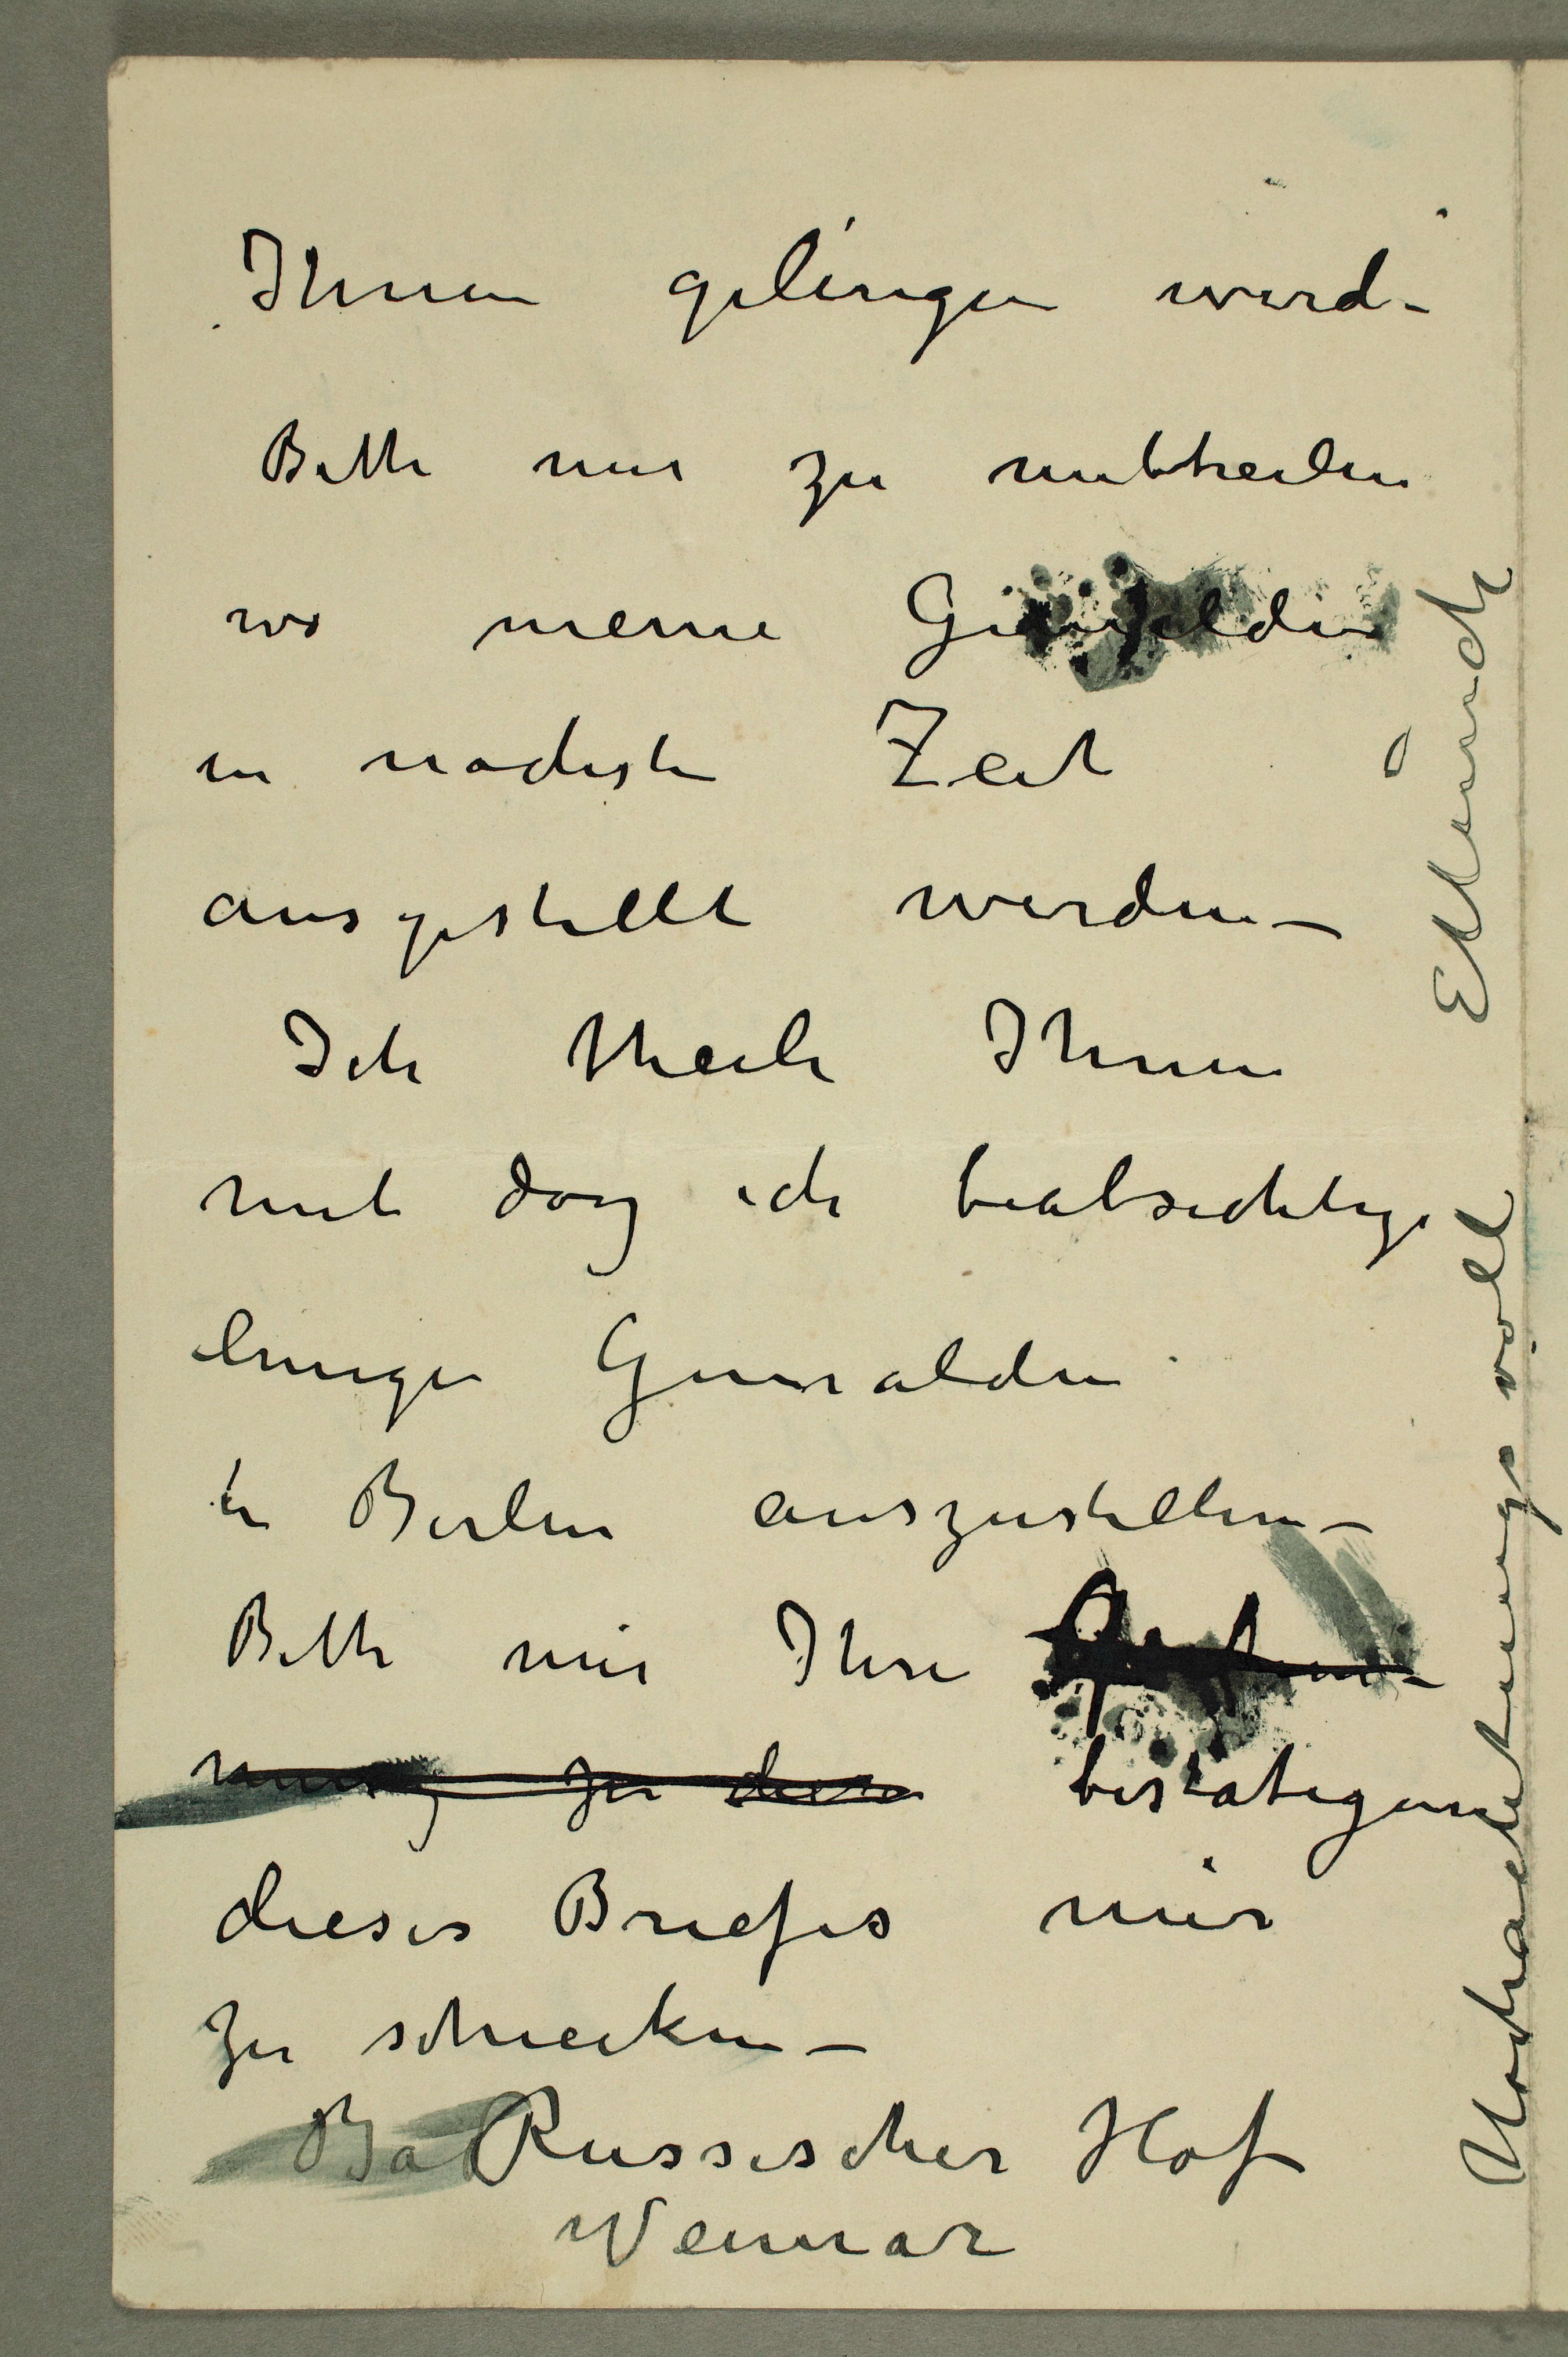 Ihnen gelingen wird –
Bitte mir zu mittheilen
wo meine Gemälden
in nächster Zeit
ausgestellt werden –
Ich theile Ihnen
mit dass ich beabsichtige
einige Gemälden
in Berlin auszustellen –
Bitte mir Ihre
zu diese bestätigung
dieses Briefes mir
zu schicken –
Russischer Hof
Weimar
Hochachtungsvoll
E Munch